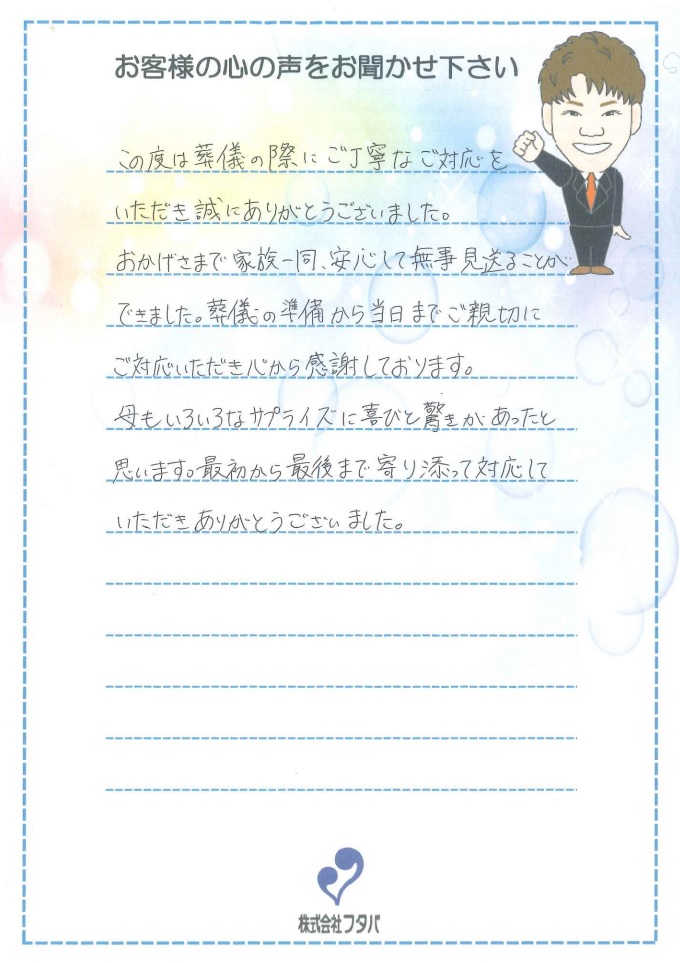 お客様の心の声をお聞かせ下さい
この度は葬儀の際にご丁寧なご対応を
いただき誠にありがとうございました。
おかげさまで家族一同、安心して無事見送ることが
できました。葬儀の準備から当日までご親切に
ご対応いただき心から感謝しております。
母もいろいろなサプライズに喜びと驚きがあったと
思います。最初から最後まで寄り添って対応して
いただきありがとうございました。
株式会社フタバ